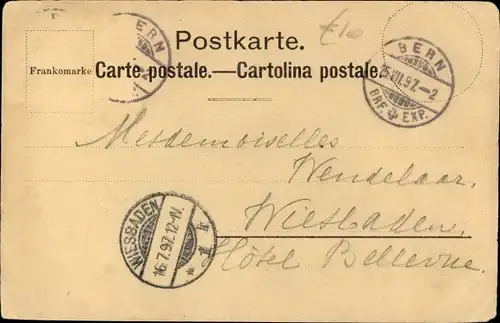 Postkarte.
Carte postale.—Cartolina postale.
Frankomarke
BERN
BERN
15.VII.97.–2
BRF. EXP.
£10
Mesdemoiselles
Wendelaar,
Wiesbaden,
Hôtel Bellevue.
WIESBADEN
16.7.97.12-1N.
* 1 k